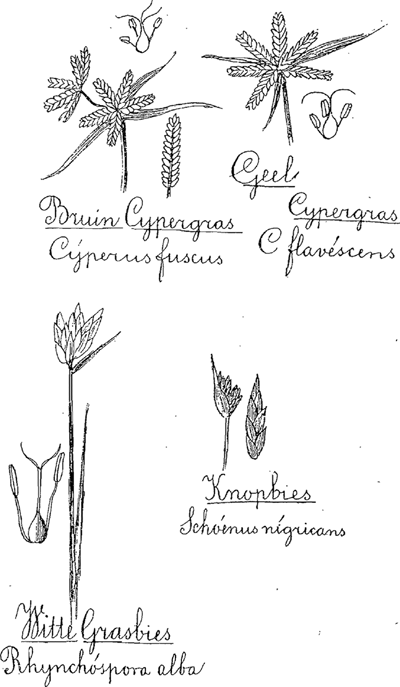 Bruin Cypergras
Cýperus fuscus
Geel
Cypergras
C flavéscens
Knopbies
Schóenus nígricans
Witte Grasbies
Rhynchóspora alba